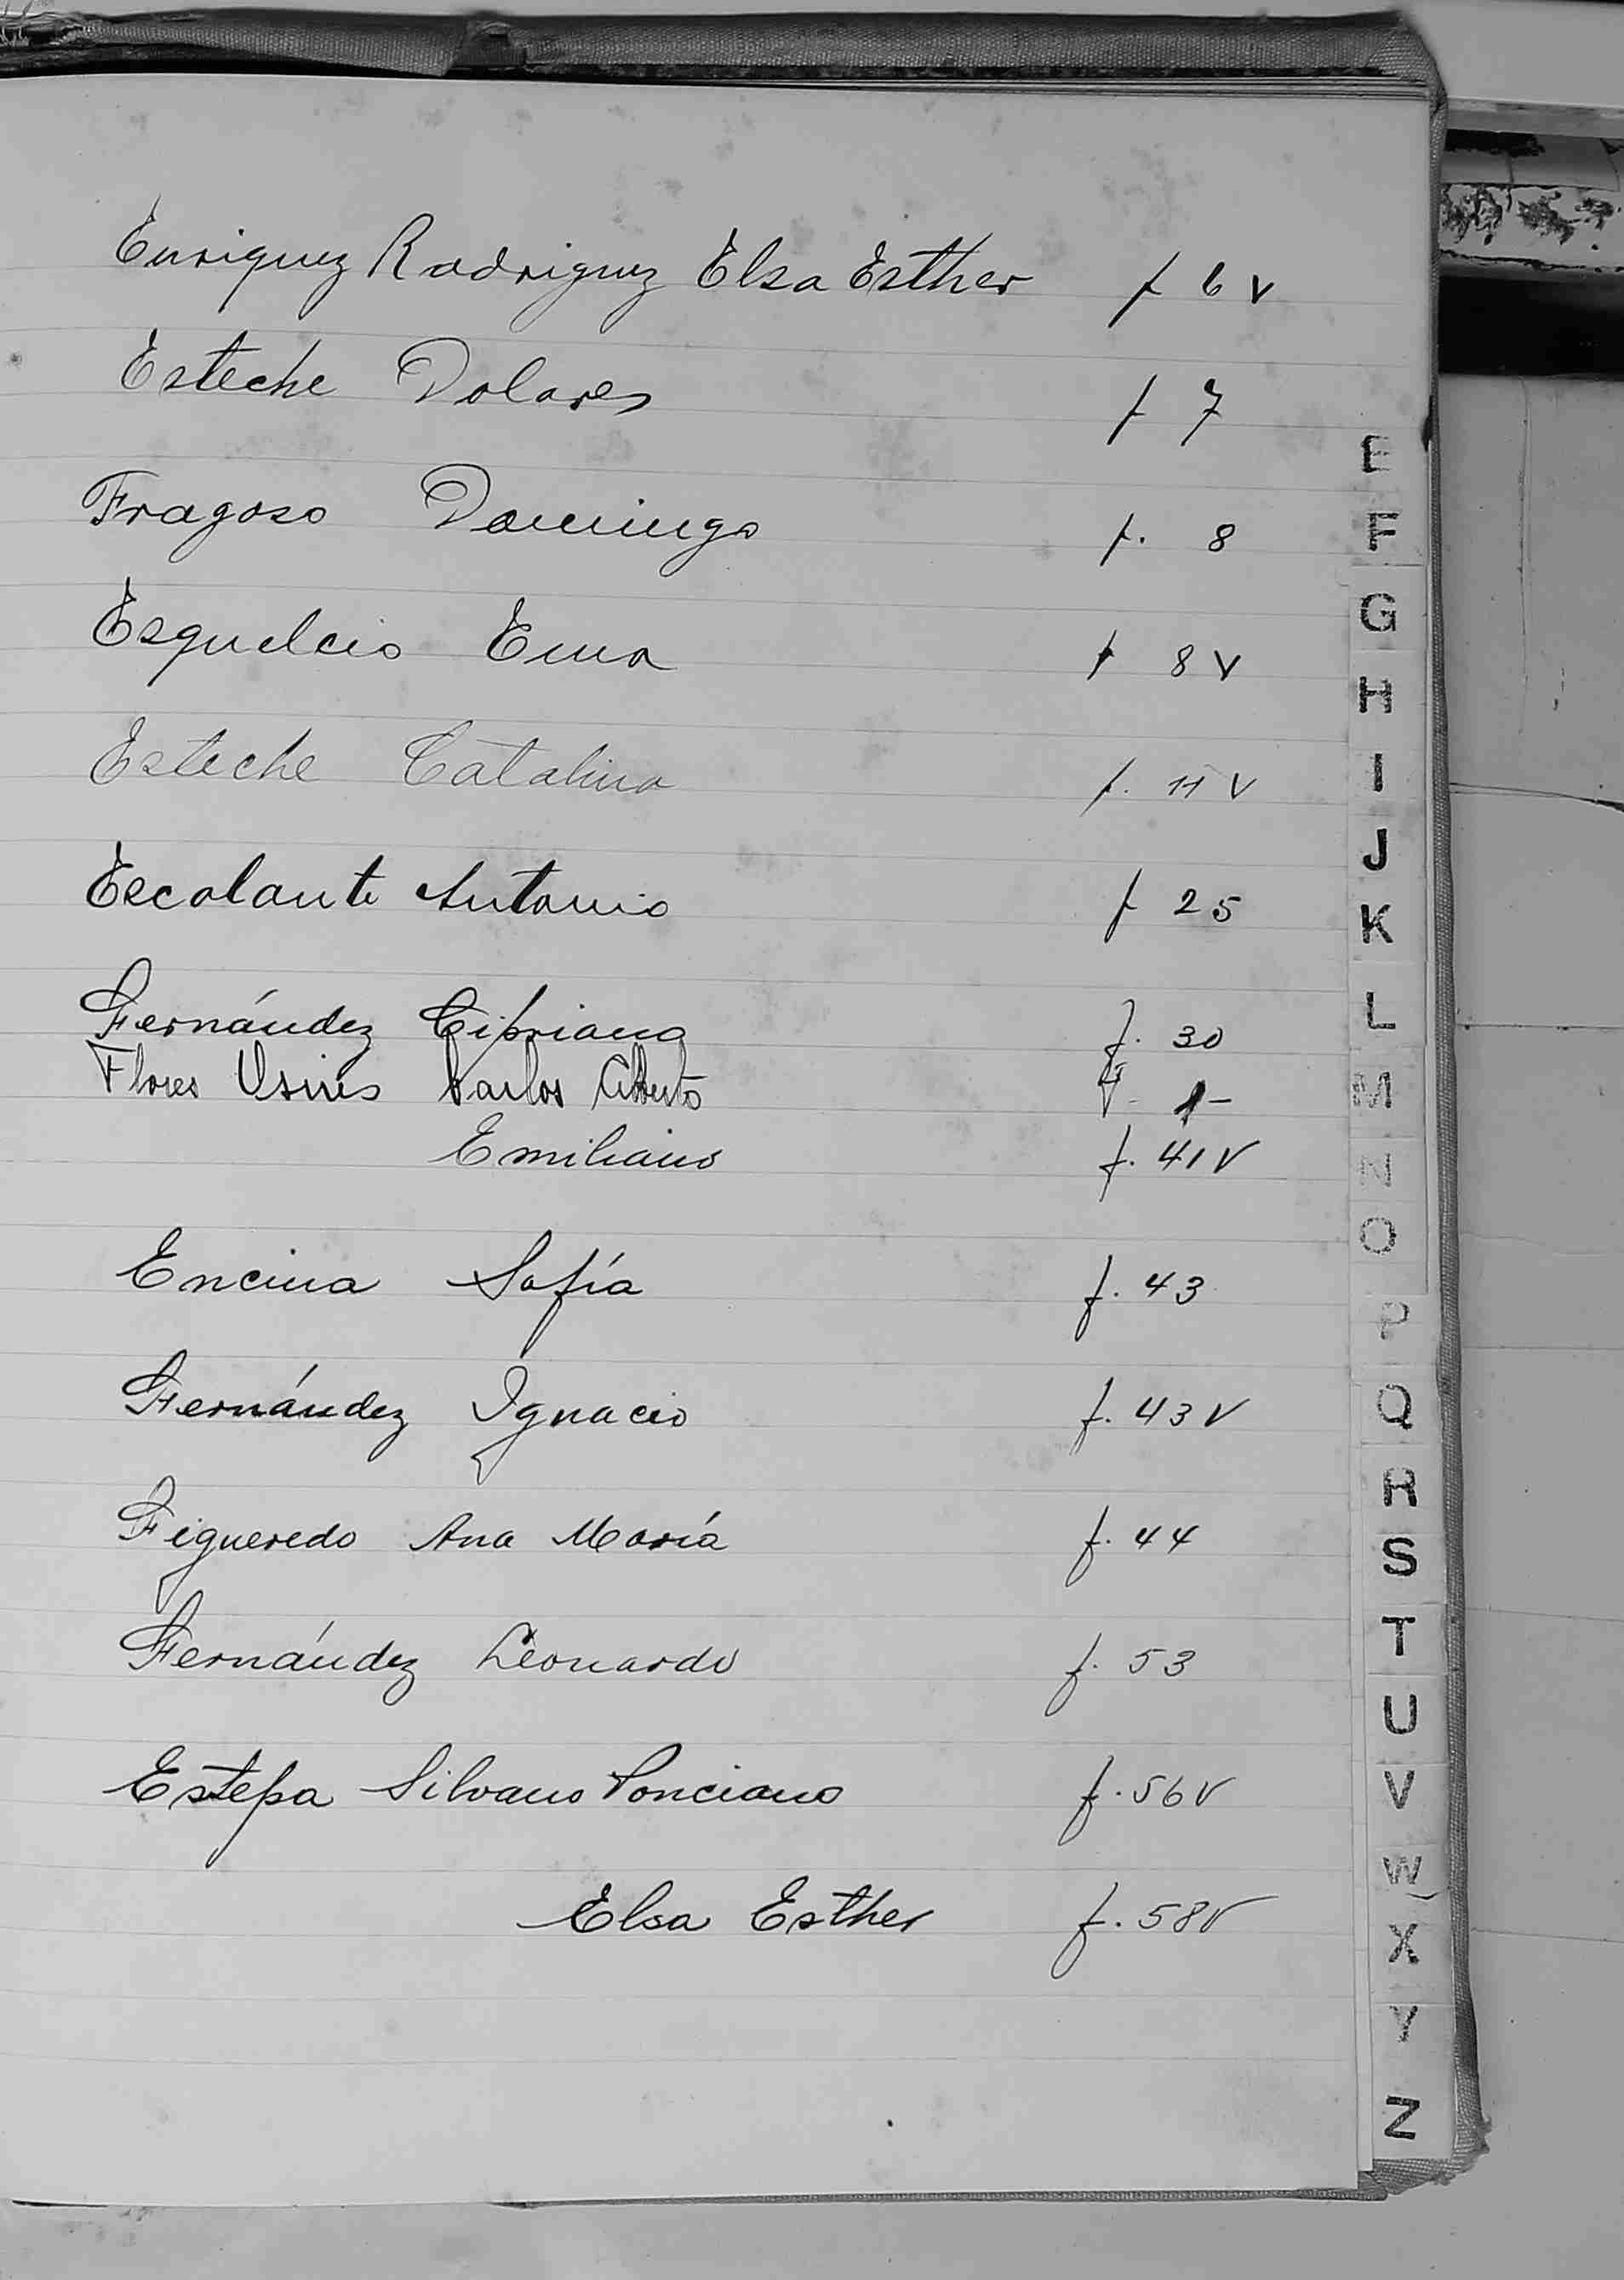 Enriquez Rodriguez Elsa Esther f 6 v
Esteche Dolores f 7
Fragoso Domingo f. 8
Esquelcio Ema f 8 v
Esteche Catalina f. 11 V
Escalante Antonio f 25
Fernández Cipriana f. 30
Flores Osires Carlos Alberto 1-
Emiliano f. 41 V
Encina Sofía f. 43
Fernández Ignacio f. 43 V
Figueredo Ana María f. 44
Fernández Leonardo f. 53
Estepa Silvano Ponciano f. 56 V
Elsa Esther f. 58 V
E
F
G
H
I
J
K
L
M
N
O
P
Q
R
S
T
U
V
W
X
Y
Z